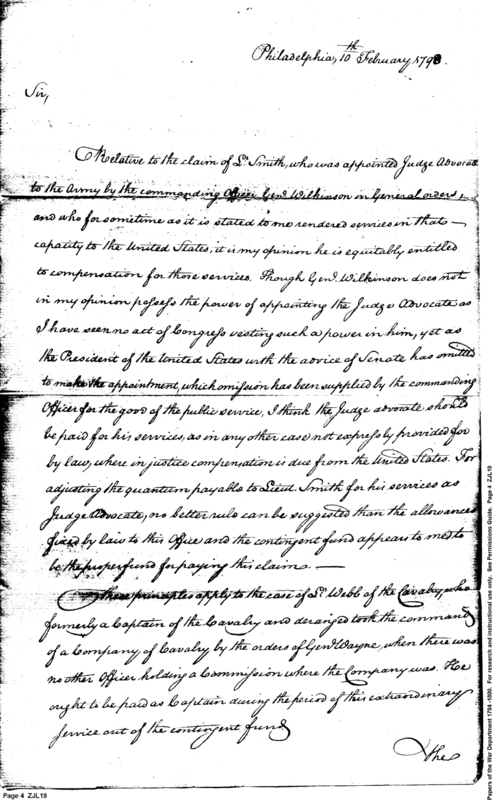 Philadelphia, 10th February 1798.
Sir,
Relative to the claim of Lt. Smith, who was appointed Judge Advocate
to the Army by the commanding Officer Genl. Wilkinson in General orders,
and who for sometime as it is stated to me rendered services in that
capacity to the United States, it is my opinion he is equitably entitled
to compensation for those services. Though Genl. Wilkinson does not
in my opinion possess the power of appointing the Judge Advocate as
I have seen no act of Congress vesting such a power in him, yet as
the President of the United States with the advice of Senate has omitted
to make the appointment, which omission has been supplied by the commanding
Officer for the good of the public service, I think the Judge advocate should
be paid for his services, as in any other case not expressly provided for
by law, where in justice compensation is due from the United States. For
adjusting the quantum payable to Lieut. Smith for his services as
Judge Advocate, no better rule can be suggested than the allowances
fixed by law to this Office and the contingent fund appears to me to
be the proper fund for paying this claim.
These principles apply to the case of Lt. Webb of the Cavalry, who
formerly a Captain of the Cavalry and deranged took the command
of a Company of Cavalry by the orders of Genl. Wayne, when there was
no other Officer holding a Commission where the Company was. He
ought to be paid as Captain during the period of this extraordinary
service out of the contingent fund
the
Page 4 ZJL19
Papers of the War Department 1784-1800. For research and instructional use only. See Permissions Guide. Page 4 ZJL19